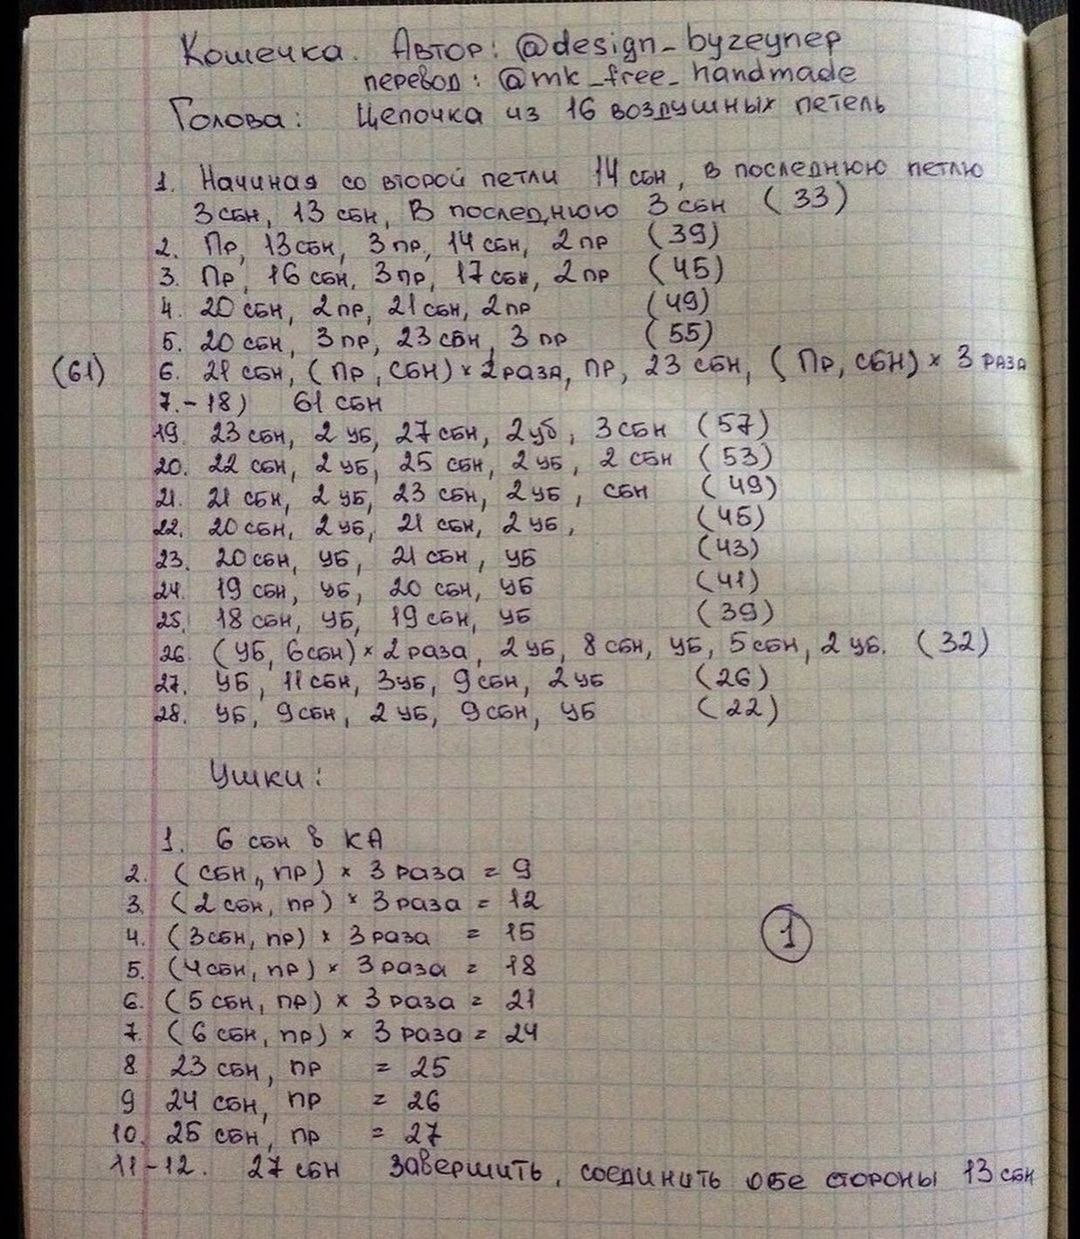 Кошечка. Автор: @design_byzeynep
перевод: @mk_free_handmade
Голова: Цепочка из 16 воздушных петель
1. Начиная со второй петли 14 сбн, в последнюю петлю
3 сбн, 13 сбн, в последнюю 3 сбн (33)
2. Пр, 13 сбн, 3 пр, 14 сбн, 2 пр (39)
3. Пр, 16 сбн, 3 пр, 17 сбн, 2 пр (45)
4. 20 сбн, 2 пр, 21 сбн, 2 пр (49)
5. 20 сбн, 3 пр, 23 сбн, 3 пр (55)
(61) 6. 21 сбн, (Пр, сбн) × 2 раза, пр, 23 сбн, (Пр, сбн) × 3 раза
7.-18) 61 сбн
19. 23 сбн, 2 уб, 27 сбн, 2 уб, 3 сбн (57)
20. 22 сбн, 2 уб, 25 сбн, 2 уб, 2 сбн (53)
21. 21 сбн, 2 уб, 23 сбн, 2 уб, сбн (49)
22. 20 сбн, 2 уб, 21 сбн, 2 уб, (45)
23. 20 сбн, уб, 21 сбн, уб (43)
24. 19 сбн, уб, 20 сбн, уб (41)
25. 18 сбн, уб, 19 сбн, уб (39)
26. (уб, 6 сбн) × 2 раза, 2 уб, 8 сбн, уб, 5 сбн, 2 уб. (32)
27. уб, 11 сбн, 3 уб, 9 сбн, 2 уб (26)
28. уб, 9 сбн, 2 уб, 9 сбн, уб (22)
Ушки:
1. 6 сбн в КА
2. (сбн, пр) × 3 раза = 9
3. (2 сбн, пр) × 3 раза = 12
4. (3 сбн, пр) × 3 раза = 15
5. (4 сбн, пр) × 3 раза = 18
6. (5 сбн, пр) × 3 раза = 21
7. (6 сбн, пр) × 3 раза = 24
8 23 сбн, пр = 25
9 24 сбн, пр = 26
10. 25 сбн, пр = 27
11-12. 27 сбн завершить, соединить обе стороны 13 сбн
1